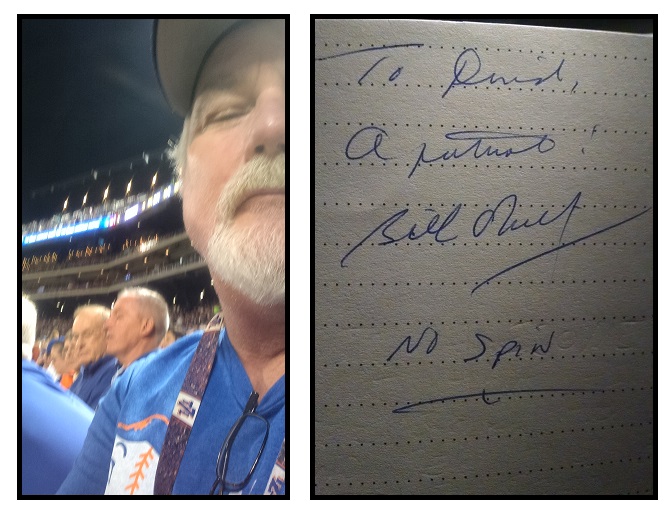 To David,
A patriot!
Bill
No Spin